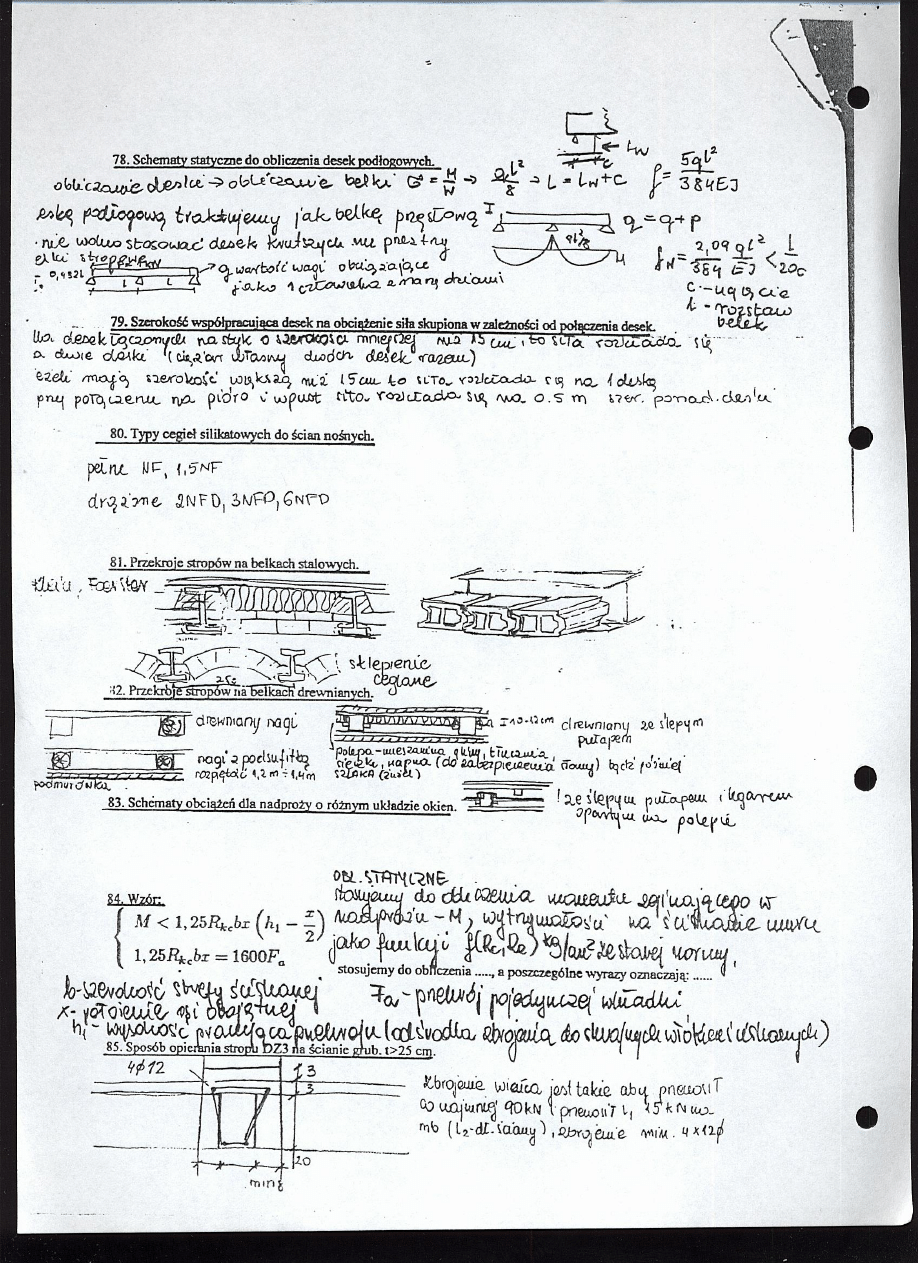 78. Schematy statyczne do obliczenia desek podłogowych.
obliczanie deski → obliczanie belki σ = M/W → ql²/8 → L = Lw + c f = 5ql²/384EJ
Lw
c
eskę podłogową traktujemy jak belkę przęsłową I q = g + p
nie wolno stosować desek krótszych niż przez trzy
elki stropowe
0,432L
L L
q wartość wagi obciążające
jako 1 człowieka z
fN = 2,09/384 ql²/EJ < L/200
c - ugięcie
L - rozstaw
belek
79. Szerokość współpracująca desek na obciążenie siła skupiona w zależności od połączenia desek.
desek łączonych na styk o szerokości mniejszej niż 15 cm, to siła rozkłada się
a dwie deski (ciężar własny dwóch desek razem)
eżeli mają szerokość większą niż 15cm to siła rozkłada się na 1 deskę
przy połączeniu na pióro i wpust siła rozkłada się na 0.5 m szer. ponad. deski
80. Typy cegieł silikatowych do ścian nośnych.
pełne NF, 1,5NF
drążone 2NFD, 3NFD, 6NFD
81. Przekroje stropów na belkach stalowych.
sklepienie
ceglane
82. Przekroje stropów na belkach drewnianych.
drewniany nagi
drewniany ze ślepym
pułapem
nagi z podsufitką
rozpiętość 1,2 m ÷ 1,4m
podmurówka
polepa - mieszanina gliny, tłucznia
sieczki, wapna (do zabezpieczenia słomy) bądź później
SZLAKA (żużel)
83. Schematy obciążeń dla nadproży o różnym układzie okien.
ze ślepym pułapem i legarem
opartym na polepie
84. Wzór:
M < 1,25R_kc bx (h₁ − x/2)
1,25R_kc bx = 1600F_a
OBL. STATYCZNE
stosujemy do obliczenia momentu zginającego w
nadprożu - M, wytrzymałości na ściskanie muru
jako funkcji f(Rc, Re) kg/cm² ze starej normy.
stosujemy do obliczenia ....., a poszczególne wyrazy oznaczają: ......
b - szerokość strefy ściskanej Fa - przekrój pojedynczej wkładki
x - położenie osi obojętnej
h₁ - wysokość pracująca przekroju (od środka zbrojenia do skrajnych włókien ściskanych)
85. Sposób opierania stropu DZ3 na ścianie grub. t>25 cm.
4φ12
3
3
20
min 8
Zbrojenie wieńca jest takie aby przenosił
co najmniej 90kN i przenosił 15kN na
mb (L₂-dł. ściany), zbrojenie min. 4 x 12φ